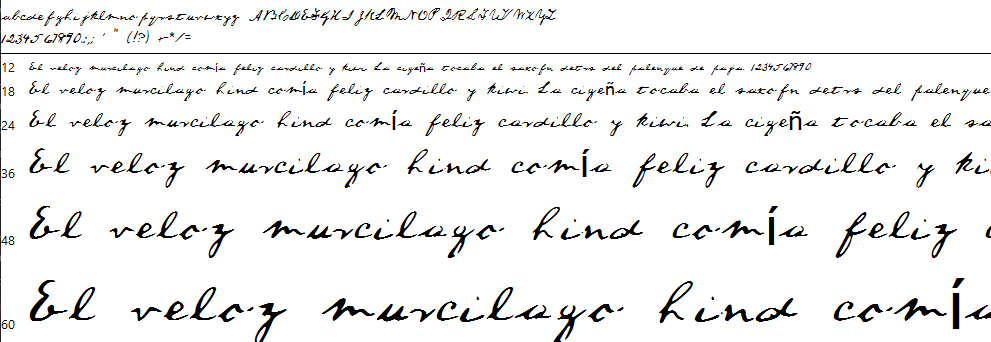 abcdefghijklmnopqrstuvwxyz ABCDEFGHIJKLMNOPQRSTUVWXYZ
1234567890.:,; ' " (!?) +-*/=
12 El veloz murcilago hind comía feliz cardillo y kiwi. La cigeña tocaba el saxofn detrs del palenque de paja 1234567890
18 El veloz murcilago hind comía feliz cardillo y kiwi. La cigeña tocaba el saxofn detrs del palenque
24 El veloz murcilago hind comía feliz cardillo y kiwi. La cigeña tocaba el sa
36 El veloz murcilago hind comía feliz cardillo y ki
48 El veloz murcilago hind comía feliz
60 El veloz murcilago hind comía